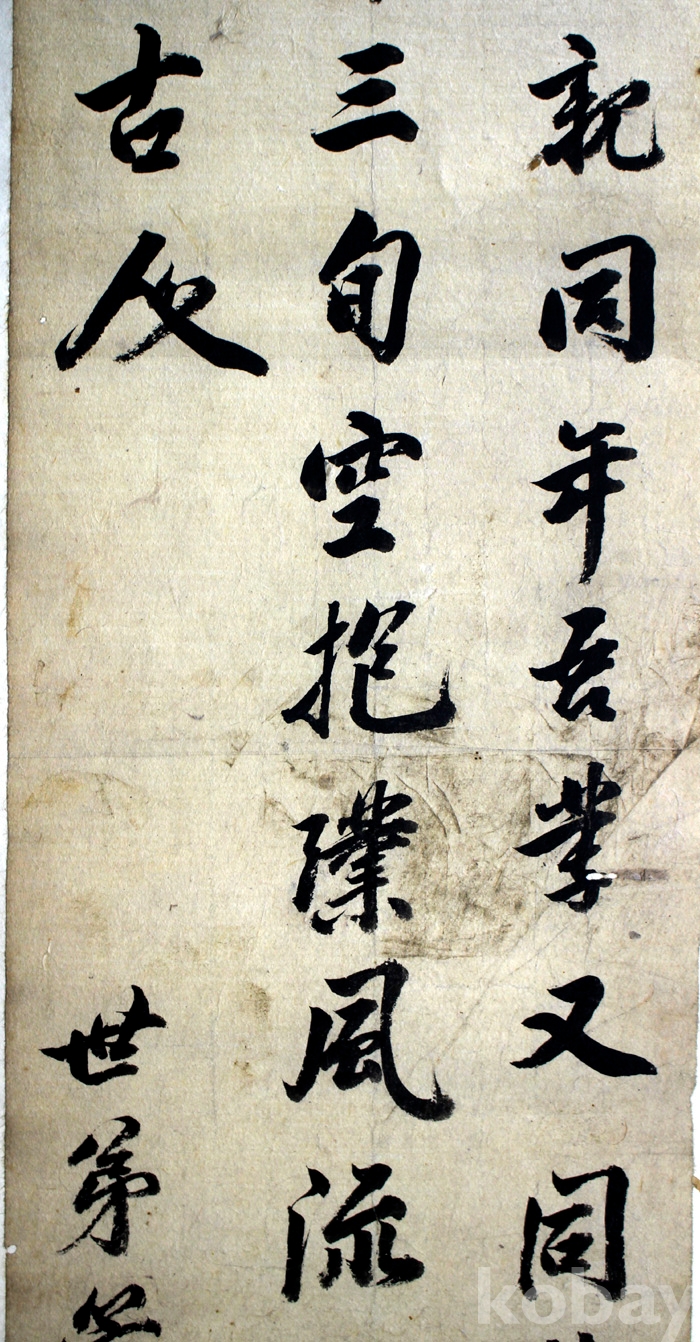 親同年吾業又同
三旬空抱璞風流
古
世弟
kobay